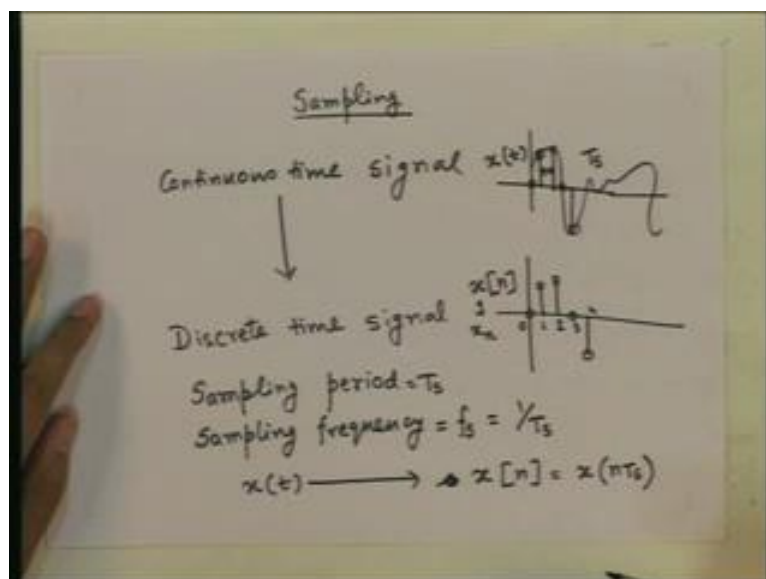 Sampling
Continuous time signal x(t) Ts
Discrete time signal x[n]
xn 0 1 2 3
Sampling period = Ts
Sampling frequency = fs = 1/Ts
x(t) → x[n] = x(nTs)